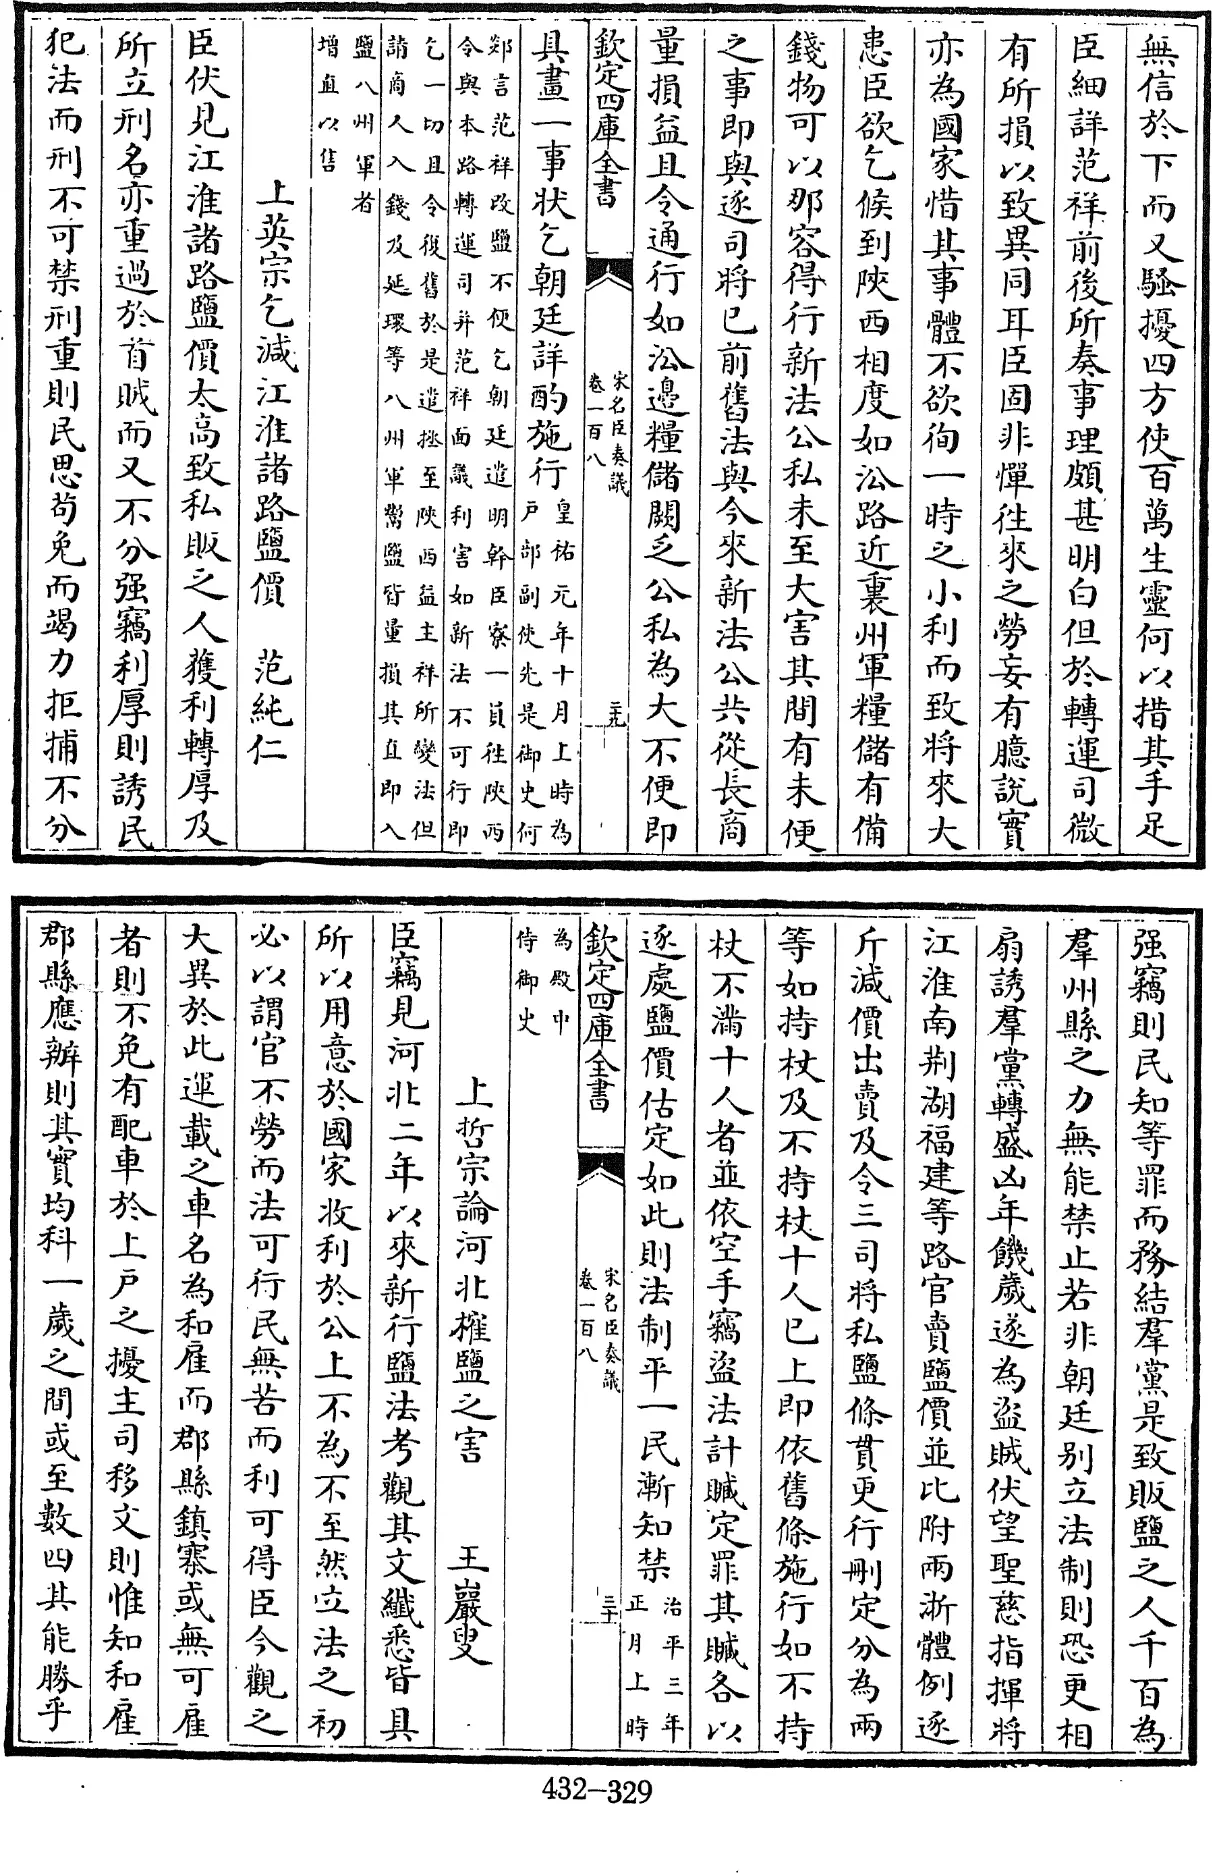 無信於下而又騷擾四方使百萬生靈何以措其手足
臣細詳范祥前後所奏事理頗甚明白但於轉運司微
有所損以致異同耳臣固非憚往來之勞妄有臆說實
亦為國家惜其事體不欲徇一時之小利而致將來大
患臣欲乞候到陜西相度如㳂路近裏州軍糧儲有備
錢物可以那容得行新法公私未至大害其間有未便
之事即與逐司將已前舊法與今來新法公共從長商
量損益且令通行如㳂邊糧儲闕乏公私為大不便即
欽定四庫全書
宋名臣奏議
卷一百八
二十九
具畫一事狀乞朝廷詳酌施行
皇祐元年十月上時為
戶部副使先是御史何
郯言范祥改鹽不便乞朝廷遣明幹臣寮一員往陜西
令與本路轉運司并范祥面議利害如新法不可行即
乞一切且令復舊於是遣拯至陜西益主祥所變法但
請商人入錢及延環等八州軍鬻鹽皆量損其直即入
鹽八州軍者
增直以售
上英宗乞減江淮諸路鹽價 范純仁
臣伏見江淮諸路鹽價太高致私販之人獲利轉厚及
所立刑名亦重過於首賊而又不分强竊利厚則誘民
犯法而刑不可禁刑重則民思苟免而竭力拒捕不分
强竊則民知等罪而務結羣黨是致販鹽之人千百為
羣州縣之力無能禁止若非朝廷别立法制則恐更相
扇誘羣黨轉盛凶年饑歲遂為盜賊伏望聖慈指揮將
江淮南荆湖福建等路官賣鹽價並比附兩浙體例逐
斤減價出賣及令三司將私鹽條貫更行刪定分為兩
等如持杖及不持杖十人已上即依舊條施行如不持
杖不滿十人者並依空手竊盜法計贓定罪其贓各以
逐處鹽價估定如此則法制平一民漸知禁
治平三年
正月上時
欽定四庫全書
宋名臣奏議
卷一百八
三十
為殿中
侍御史
上哲宗論河北榷鹽之害 王巖叟
臣竊見河北二年以來新行鹽法考觀其文纎悉皆具
所以用意於國家收利於公上不為不至然立法之初
必以謂官不勞而法可行民無苦而利可得臣今觀之
大異於此運載之車名為和雇而郡縣鎮寨或無可雇
者則不免有配車於上戶之擾主司移文則惟知和雇
郡縣應辦則其實均科一歲之間或至數四其能勝乎
432-329